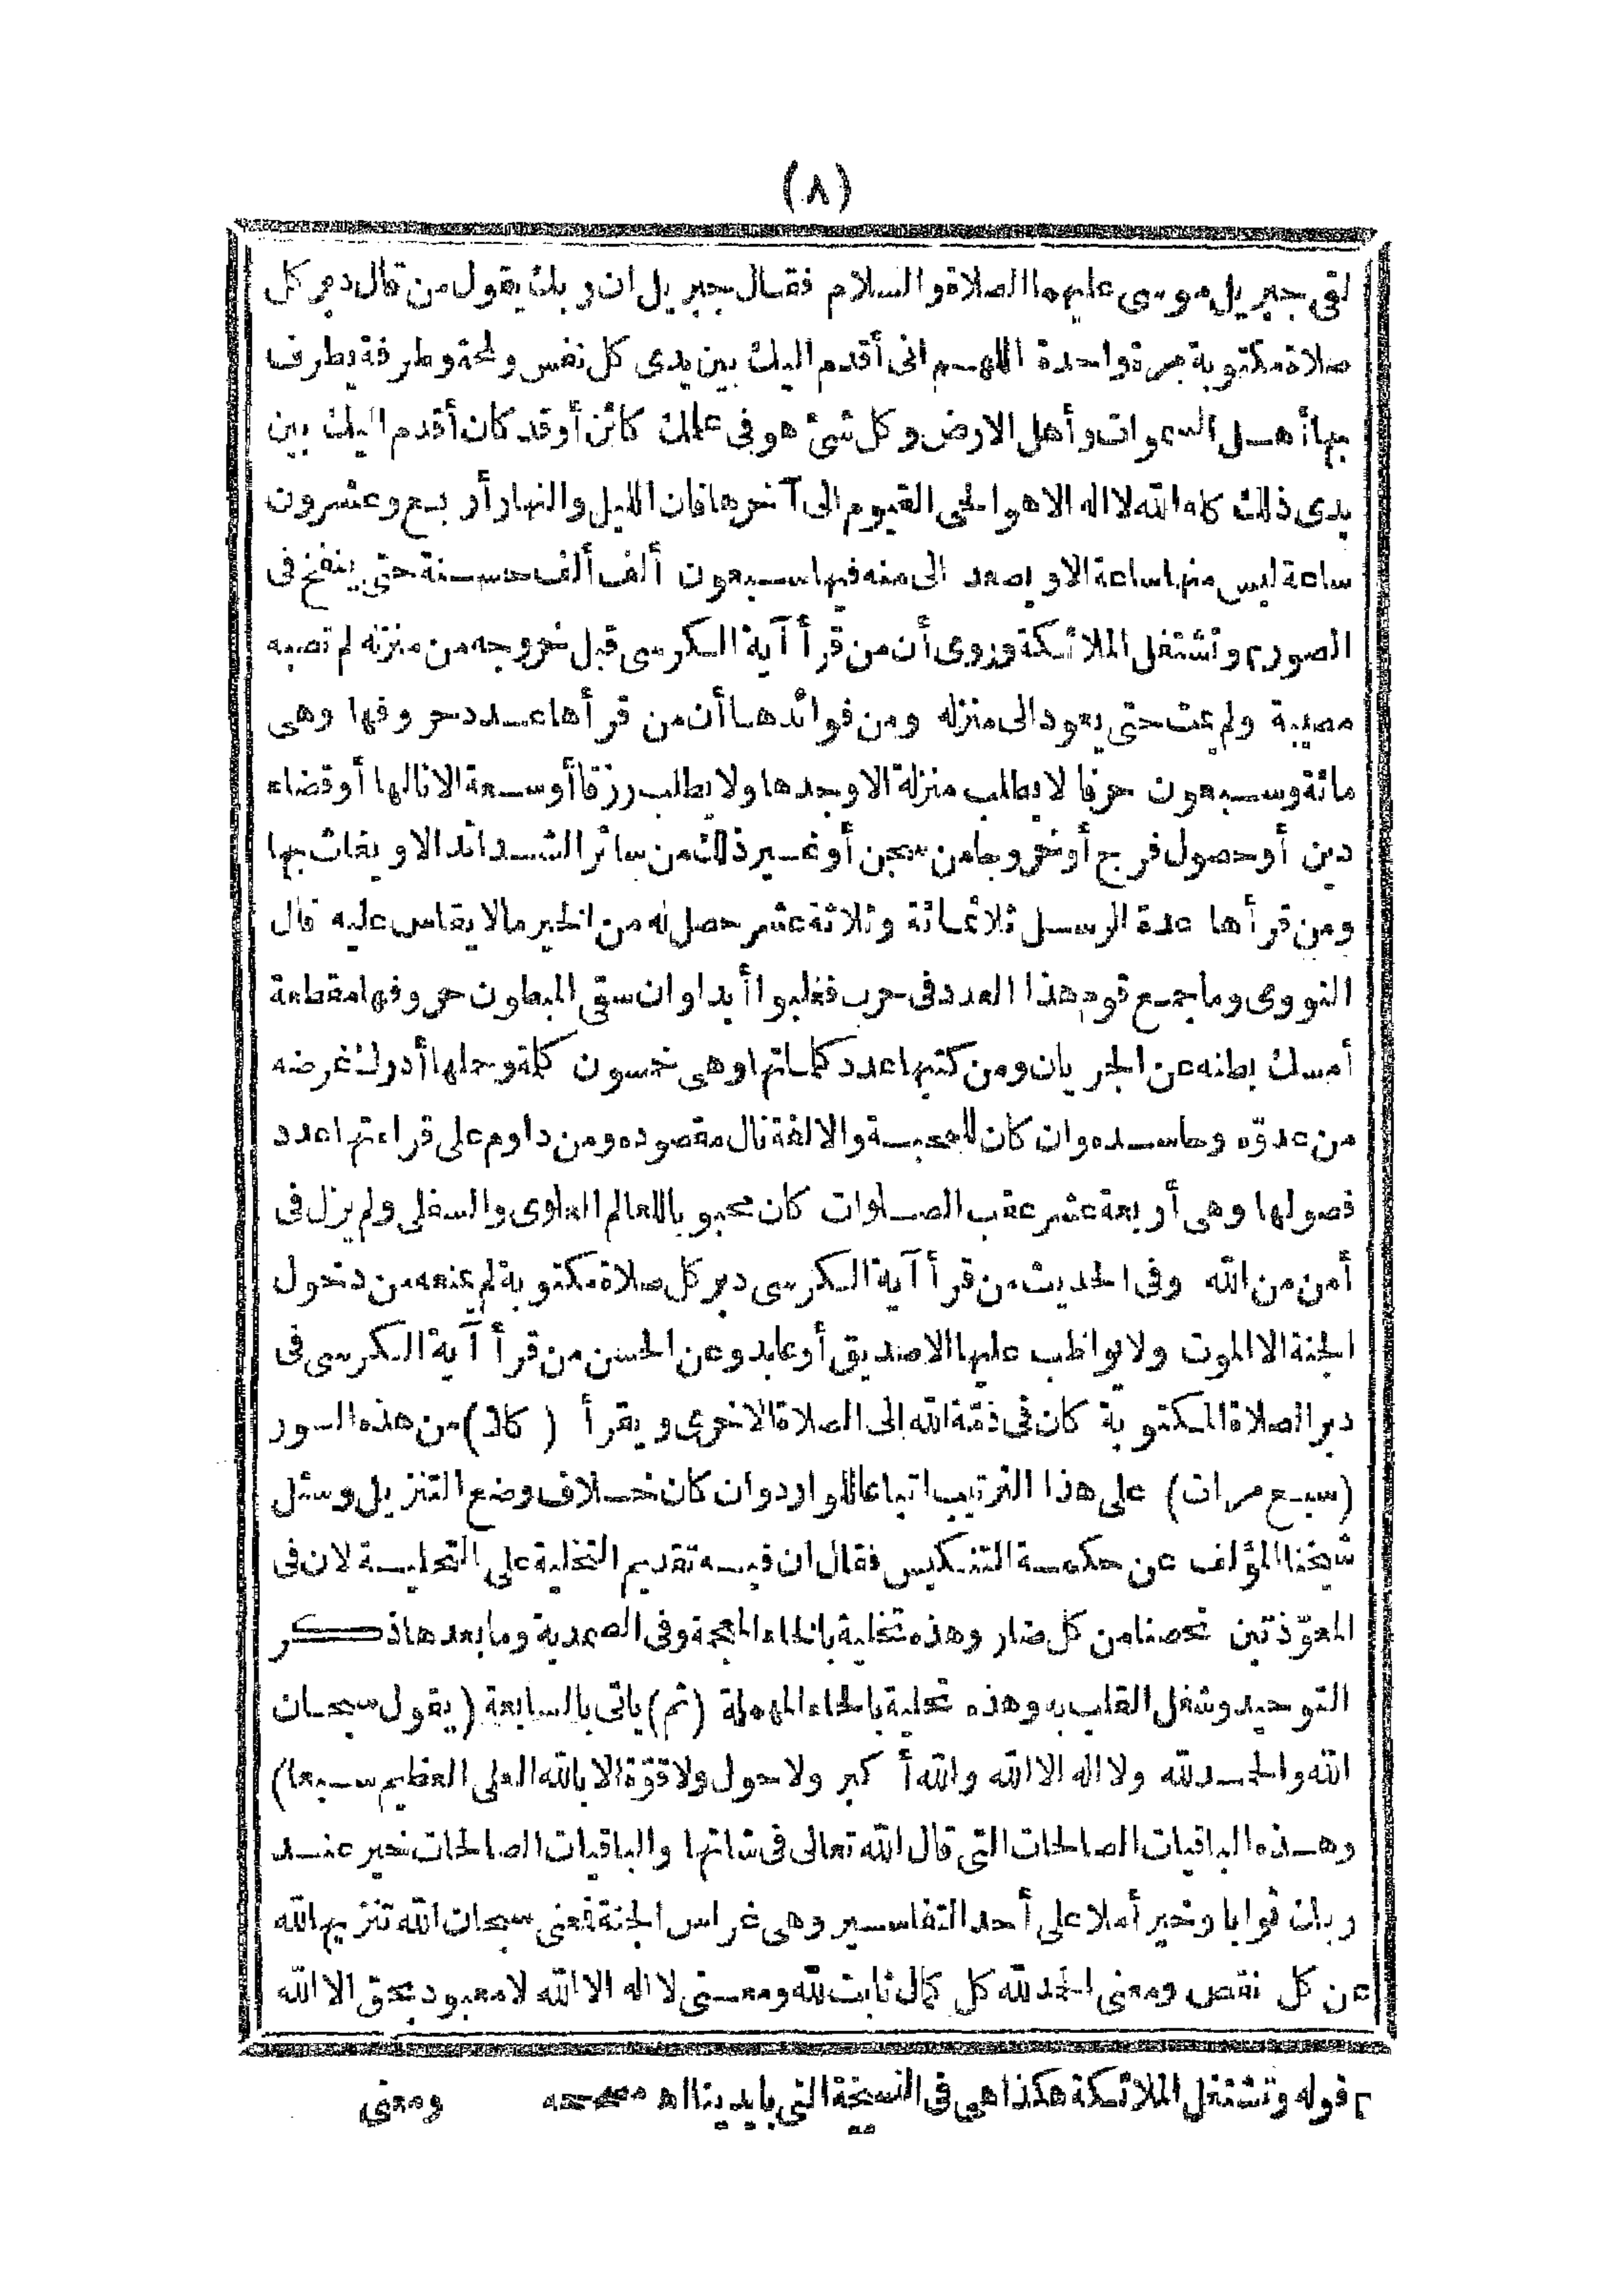 (٨)
لقى جبريل موسى عليهما الصلاة والسلام فقال جبريل ان ربك يقول من قال دبر كل
صلاة مكتوبة مرة واحدة اللهم انى أقدم اليك بين يدى كل نفس ولمحة وطرفة يطرف
بها أهل السموات وأهل الارض وكل شئ هو فى علمك كائن أو قد كان أقدم اليك بين
يدى ذلك كله الله لا اله الا هو الحى القيوم الى آخرها فان الليل والنهار أربع وعشرون
ساعة ليس منها ساعة الا ويصعد الى منه فيها سبعون ألف ألف حسنة حتى ينفخ فى
الصور ٢ وتشتغل الملائكة وروى أن من قرأ آية الكرسى قبل خروجه من منزله لم تصبه
مصيبة ولم يمت حتى يعود الى منزله ومن فوائدها أن من قرأها عدد حروفها وهى
مائة وسبعون حرفا لا يطلب منزلة الا وجدها ولا يطلب رزقا أو سعة الا نالها أو قضاء
دين أو حصول فرج أو خروجا من سجن أو غير ذلك من سائر الشدائد الا ويغاث بها
ومن قرأها عدة الرسل ثلاثمائة وثلاثة عشر حصل له من الخير ما لا يقاس عليه قال
النووى وما جمع قوم هذا العدد فى حرب فغلبوا أبدا وان سقى المبطون حروفها مقطعة
أمسك بطنه عن الجريان ومن كتبها عدد كلماتها وهى خمسون كلمة وحملها أدرك غرضه
من عدوّه وحاسده وان كان للمحبة والالفة نال مقصوده ومن داوم على قراءتها عدد
فصولها وهى أربعة عشر عقب الصلوات كان محبوبا للعالم العلوى والسفلى ولم يزل فى
أمن من الله وفى الحديث من قرأ آية الكرسى دبر كل صلاة مكتوبة لم يمنعه من دخول
الجنة الا الموت ولا يواظب عليها الا صديق أو عابد وعن الحسن من قرأ آية الكرسى فى
دبر الصلاة المكتوبة كان فى ذمّة الله الى الصلاة الاخرى ويقرأ (كلا) من هذه السور
(سبع مرات) على هذا الترتيب اتباعا للوارد وان كان خلاف وضع التنزيل وسئل
شيخنا المؤلف عن حكمة التنكيس فقال ان فيه تقديم التخلية على التحلية لان فى
المعوّذتين تحصنا من كل ضار وهذه تخلية بالخاء المعجمة وفى الصمدية وما بعدها ذكر
التوحيد وشغل القلب به وهذه تحلية بالحاء المهملة (ثم) ياتى بالسابعة (يقول سبحان
الله والحمد لله ولا اله الا الله والله أكبر ولا حول ولا قوّة الا بالله العلى العظيم سبعا)
وهذه الباقيات الصالحات التى قال الله تعالى فى شانها والباقيات الصالحات خير عند
ربك ثوابا وخير أملا على أحد التفاسير وهى غراس الجنة فمعنى سبحان الله تنزيه الله
عن كل نقص ومعنى الحمد لله كل كمال ثابت لله ومعنى لا اله الا الله لا معبود بحق الا الله
٢ قوله وتشتغل الملائكة هكذا هى فى النسخة التى بايدينا اه مصححه
ومعنى